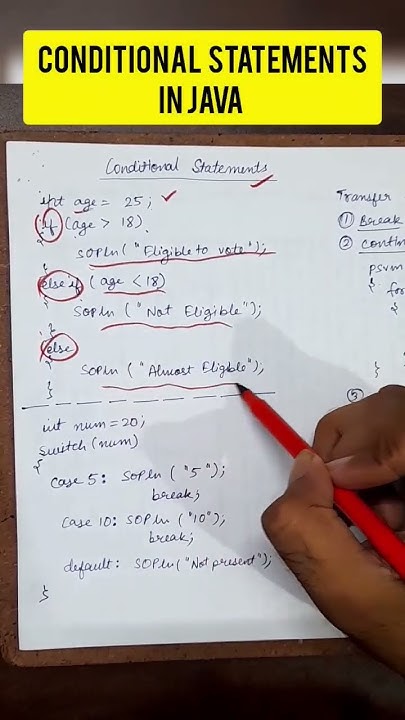 CONDITIONAL STATEMENTS
IN JAVA
Conditional Statements
int age = 25;
if (age > 18).
{
SOPln ("Eligible to vote");
}
else if (age < 18)
{
SOPln ("Not Eligible");
}
else
{
SOPln ("Almost Eligible");
}
int num = 20;
switch (num)
{
case 5: SOPln ("5");
break;
case 10: SOPln ("10");
break;
default: SOPln ("Not present");
}
Transfer
① Break
② Contin
psvm
{ for
{
}
}
③